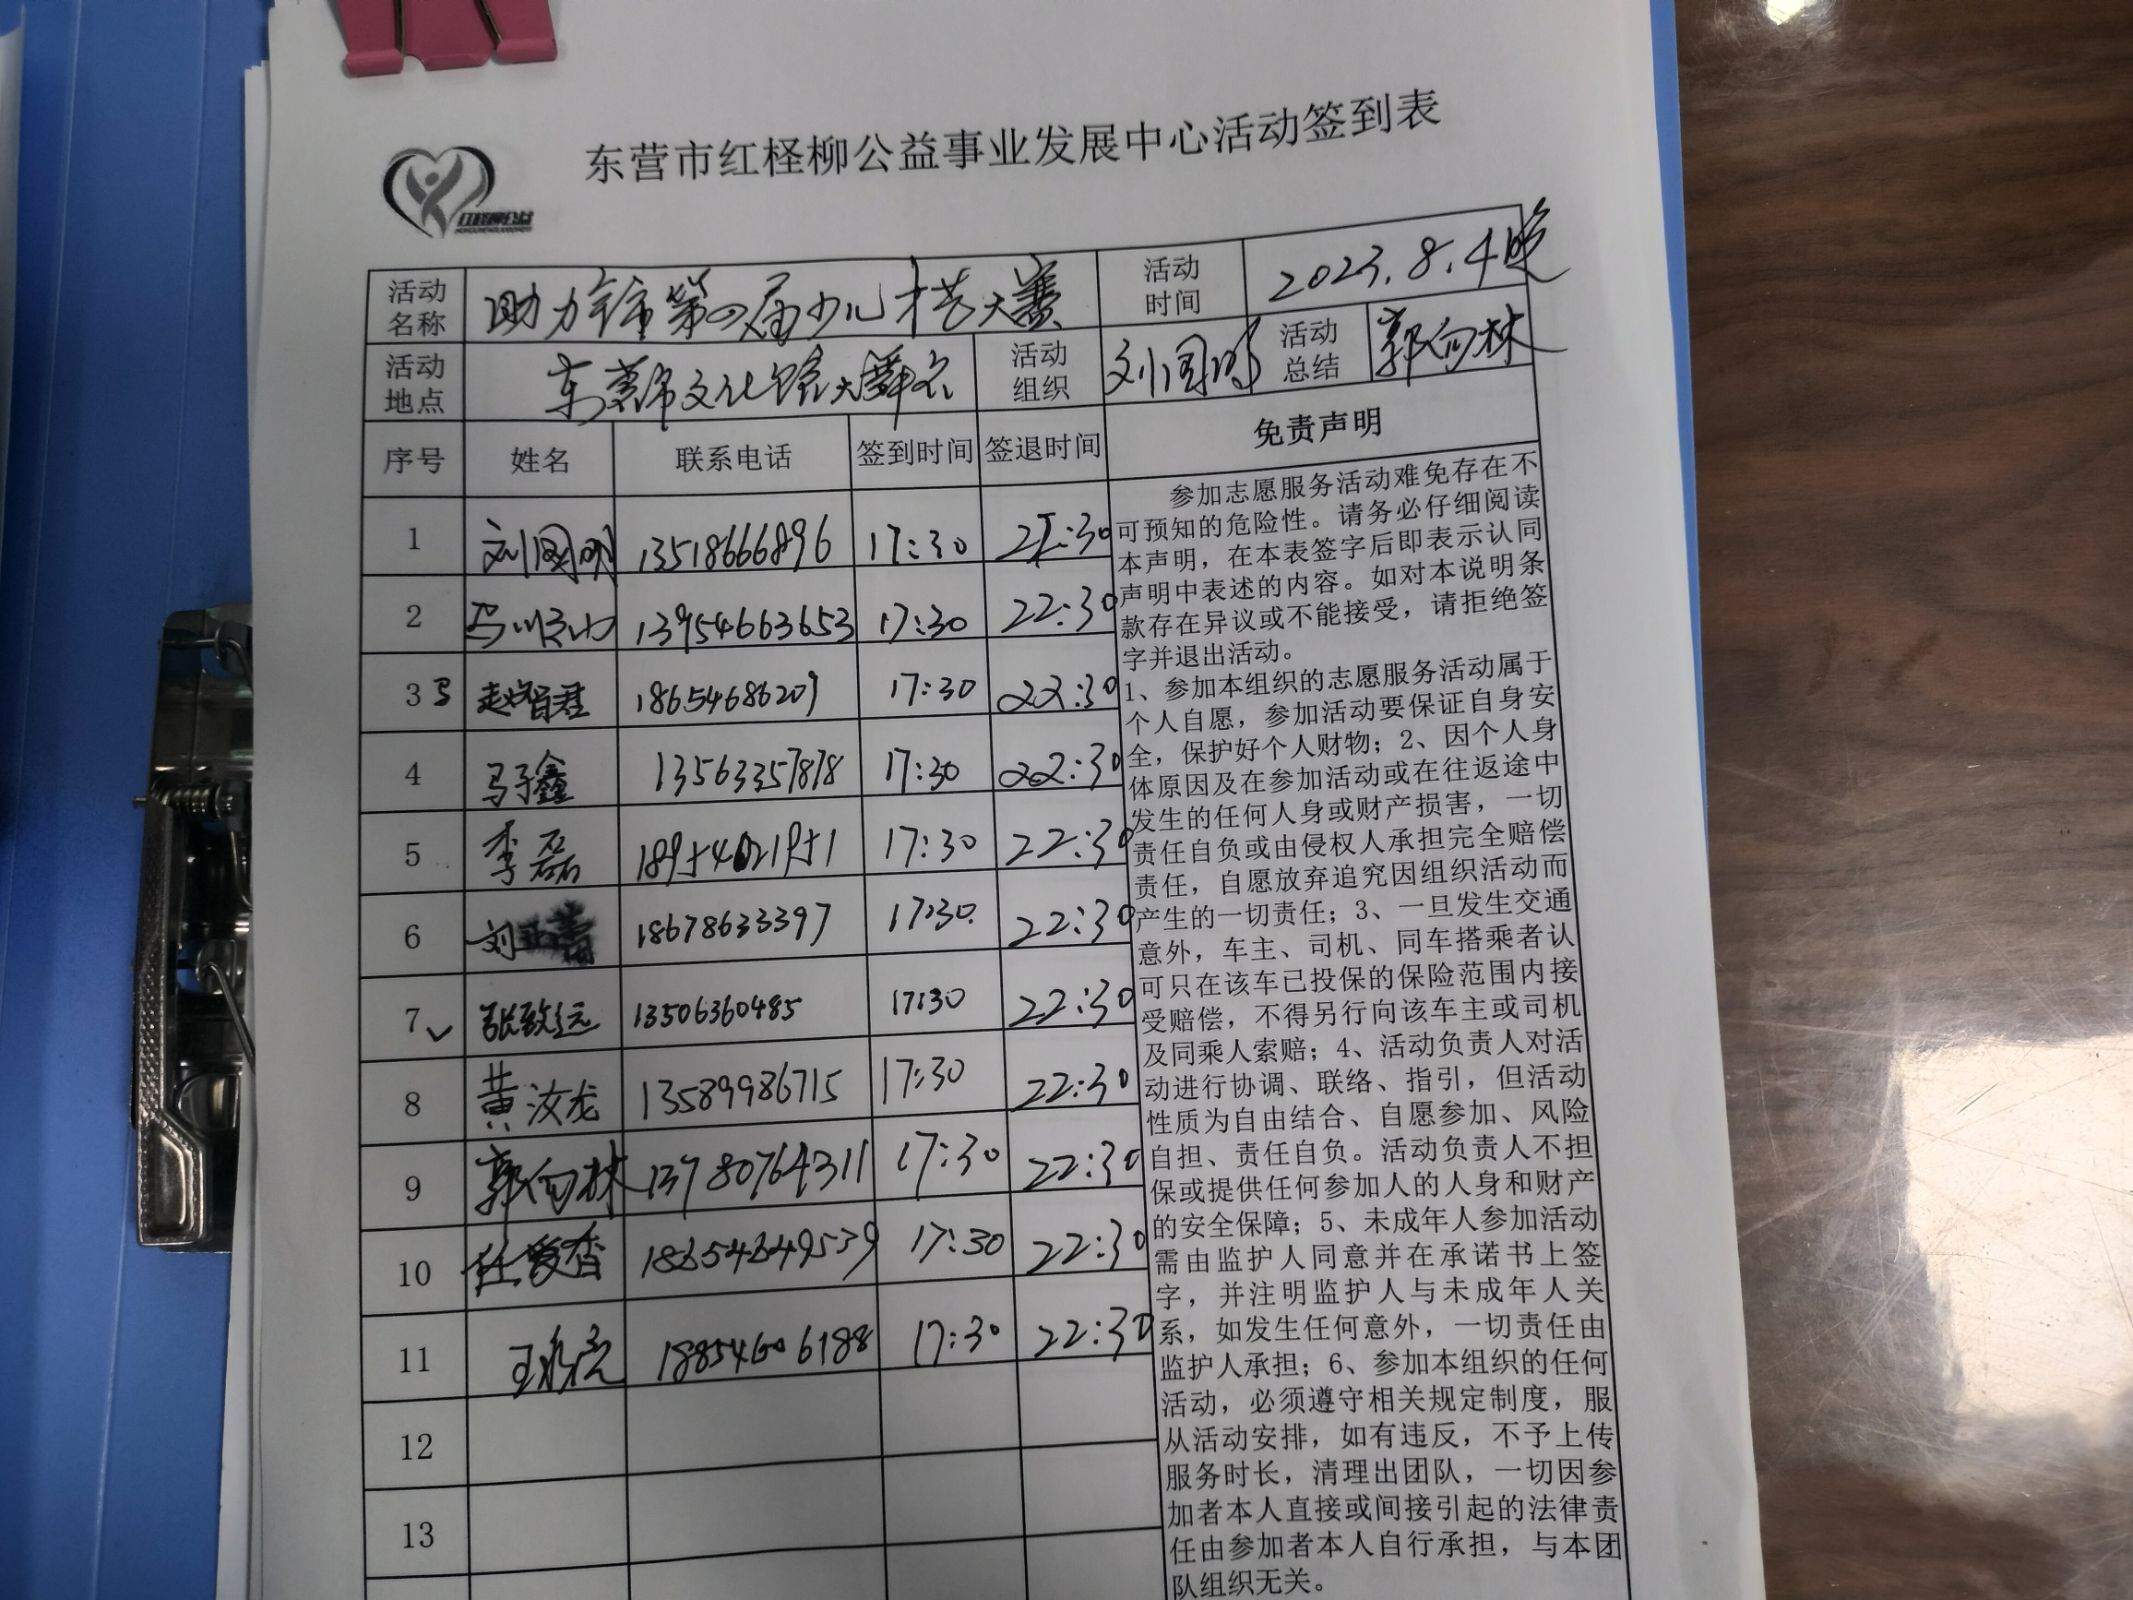 东营市红柽柳公益事业发展中心活动签到表
活动名称 助力全市第四届少儿才艺大赛 活动时间 2023.8.4晚
活动地点 东营市文化馆大舞台 活动组织 刘国明 活动总结 郭向林
序号 姓名 联系电话 签到时间 签退时间 免责声明
1 刘国明 13518666896 17:30 22:30
2 13954663653 17:30 22:30
3 赵智君 18654686209 17:30 22:30
4 马子鑫 13563357878 17:30 22:30
5 李磊 17:30 22:30
6 刘 18678633397 17:30 22:30
7 张致远 13506360485 17:30 22:30
8 黄汝龙 13589986715 17:30 22:30
9 郭向林 13780764311 17:30 22:30
10 任爱香 18654649539 17:30 22:30
11 18854606188 17:30 22:30
12
13
参加志愿服务活动难免存在不
可预知的危险性。请务必仔细阅读
本声明，在本表签字后即表示认同
声明中表述的内容。如对本说明条
款存在异议或不能接受，请拒绝签
字并退出活动。
1、参加本组织的志愿服务活动属于
个人自愿，参加活动要保证自身安
全，保护好个人财物；2、因个人身
体原因及在参加活动或在往返途中
发生的任何人身或财产损害，一切
责任自负或由侵权人承担完全赔偿
责任，自愿放弃追究因组织活动而
产生的一切责任；3、一旦发生交通
意外，车主、司机、同车搭乘者认
可只在该车已投保的保险范围内接
受赔偿，不得另行向该车主或司机
及同乘人索赔；4、活动负责人对活
动进行协调、联络、指引，但活动
性质为自由结合、自愿参加、风险
自担、责任自负。活动负责人不担
保或提供任何参加人的人身和财产
的安全保障；5、未成年人参加活动
需由监护人同意并在承诺书上签
字，并注明监护人与未成年人关
系，如发生任何意外，一切责任由
监护人承担；6、参加本组织的任何
活动，必须遵守相关规定制度，服
从活动安排，如有违反，不予上传
服务时长，清理出团队，一切因参
加者本人直接或间接引起的法律责
任由参加者本人自行承担，与本团
队组织无关。